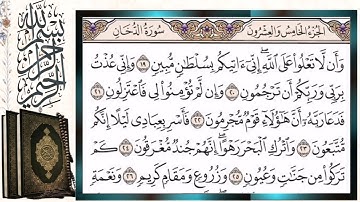 بسم الله الرحمن الرحيم
الجزء الخامس والعشرون
سورة الدخان
وَأَن لَّا تَعْلُوا۟ عَلَى ٱللَّهِ ۖ إِنِّىٓ ءَاتِيكُم بِسُلْطَٰنٍ مُّبِينٍ ١٩ وَإِنِّى عُذْتُ
بِرَبِّى وَرَبِّكُمْ أَن تَرْجُمُونِ ٢٠ وَإِن لَّمْ تُؤْمِنُوا۟ لِى فَٱعْتَزِلُونِ ٢١
فَدَعَا رَبَّهُۥٓ أَنَّ هَٰٓؤُلَآءِ قَوْمٌ مُّجْرِمُونَ ٢٢ فَأَسْرِ بِعِبَادِى لَيْلًا إِنَّكُم
مُّتَّبَعُونَ ٢٣ وَٱتْرُكِ ٱلْبَحْرَ رَهْوًا ۖ إِنَّهُمْ جُندٌ مُّغْرَقُونَ ٢٤ كَمْ
تَرَكُوا۟ مِن جَنَّٰتٍ وَعُيُونٍ ٢٥ وَزُرُوعٍ وَمَقَامٍ كَرِيمٍ ٢٦ وَنَعْمَةٍ